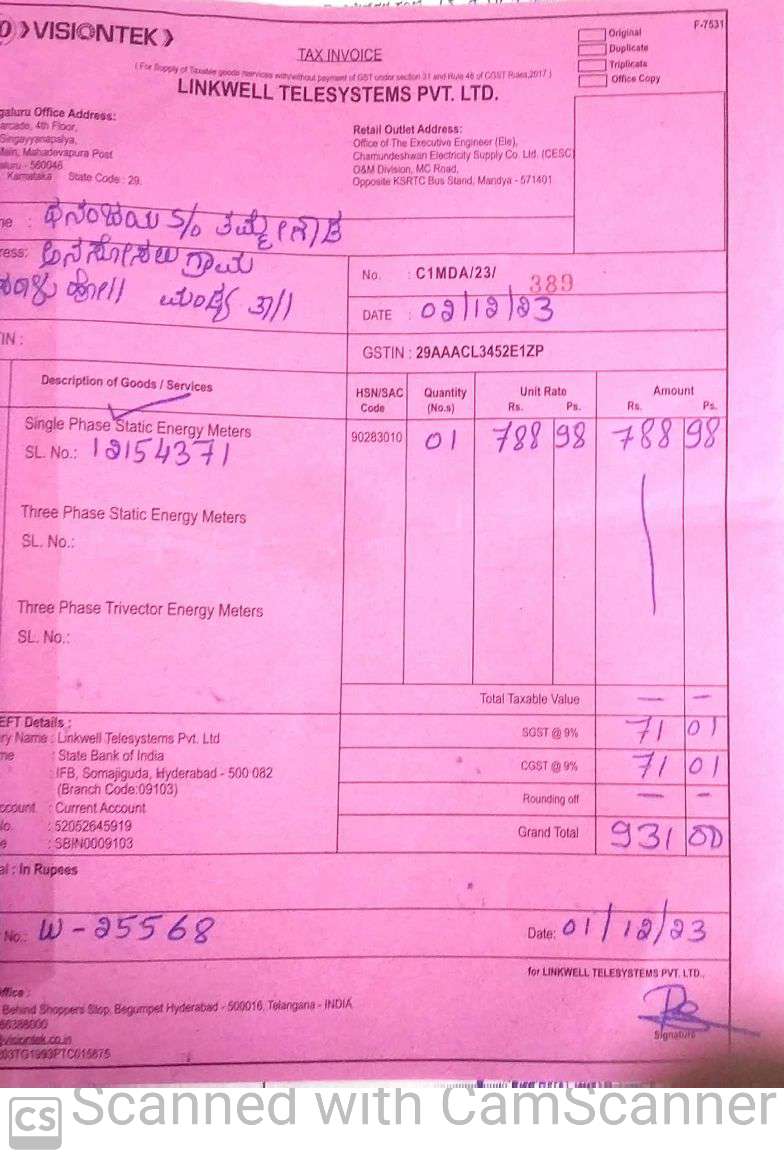 VISIONTEK
F-7531
Original
Duplicate
Triplicate
Office Copy
TAX INVOICE
( For Supply of Taxable goods /services with/without payment of GST under section 31 and Rule 46 of CGST Rules,2017 )
LINKWELL TELESYSTEMS PVT. LTD.
galuru Office Address:
arcade, 4th Floor,
Singayyanapalya,
Main, Mahadevapura Post
aluru - 560048
Karnataka State Code : 29.
Retail Outlet Address:
Office of The Executive Engineer (Ele),
Chamundeshwari Electricity Supply Co. Ltd. (CESC)
O&M Division, MC Road,
Opposite KSRTC Bus Stand, Mandya - 571401
me : ಧನಂಜಯ S/o ತಮ್ಮೇಗೌಡ
ress: ಗ್ರಾಮ
ಹೋ// ಮಂಡ್ಯ ತಾ//
No. : C1MDA/23/ 389
DATE : 02/12/23
IN :
GSTIN : 29AAACL3452E1ZP
Description of Goods / Services HSN/SAC Code Quantity (No.s) Unit Rate Rs. Ps. Amount Rs. Ps.
Single Phase Static Energy Meters 90283010 01 788 98 788 98
SL. No.: 12154371
Three Phase Static Energy Meters
SL. No.:
Three Phase Trivector Energy Meters
SL. No.:
Total Taxable Value — —
SGST @ 9% 71 01
CGST @ 9% 71 01
Rounding off — —
Grand Total 931 00
EFT Details :
ry Name : Linkwell Telesystems Pvt. Ltd
me : State Bank of India
: IFB, Somajiguda, Hyderabad - 500 082
(Branch Code:09103)
ccount : Current Account
No. : 52052645919
e : SBIN0009103
al : In Rupees
No.: W-25568
Date: 01/12/23
for LINKWELL TELESYSTEMS PVT. LTD.,
Signature
ffice :
Behind Shoppers Stop, Begumpet Hyderabad - 500016, Telangana - INDIA
66388000
visiontek.co.in
03TG1993PTC015675
CS Scanned with CamScanner